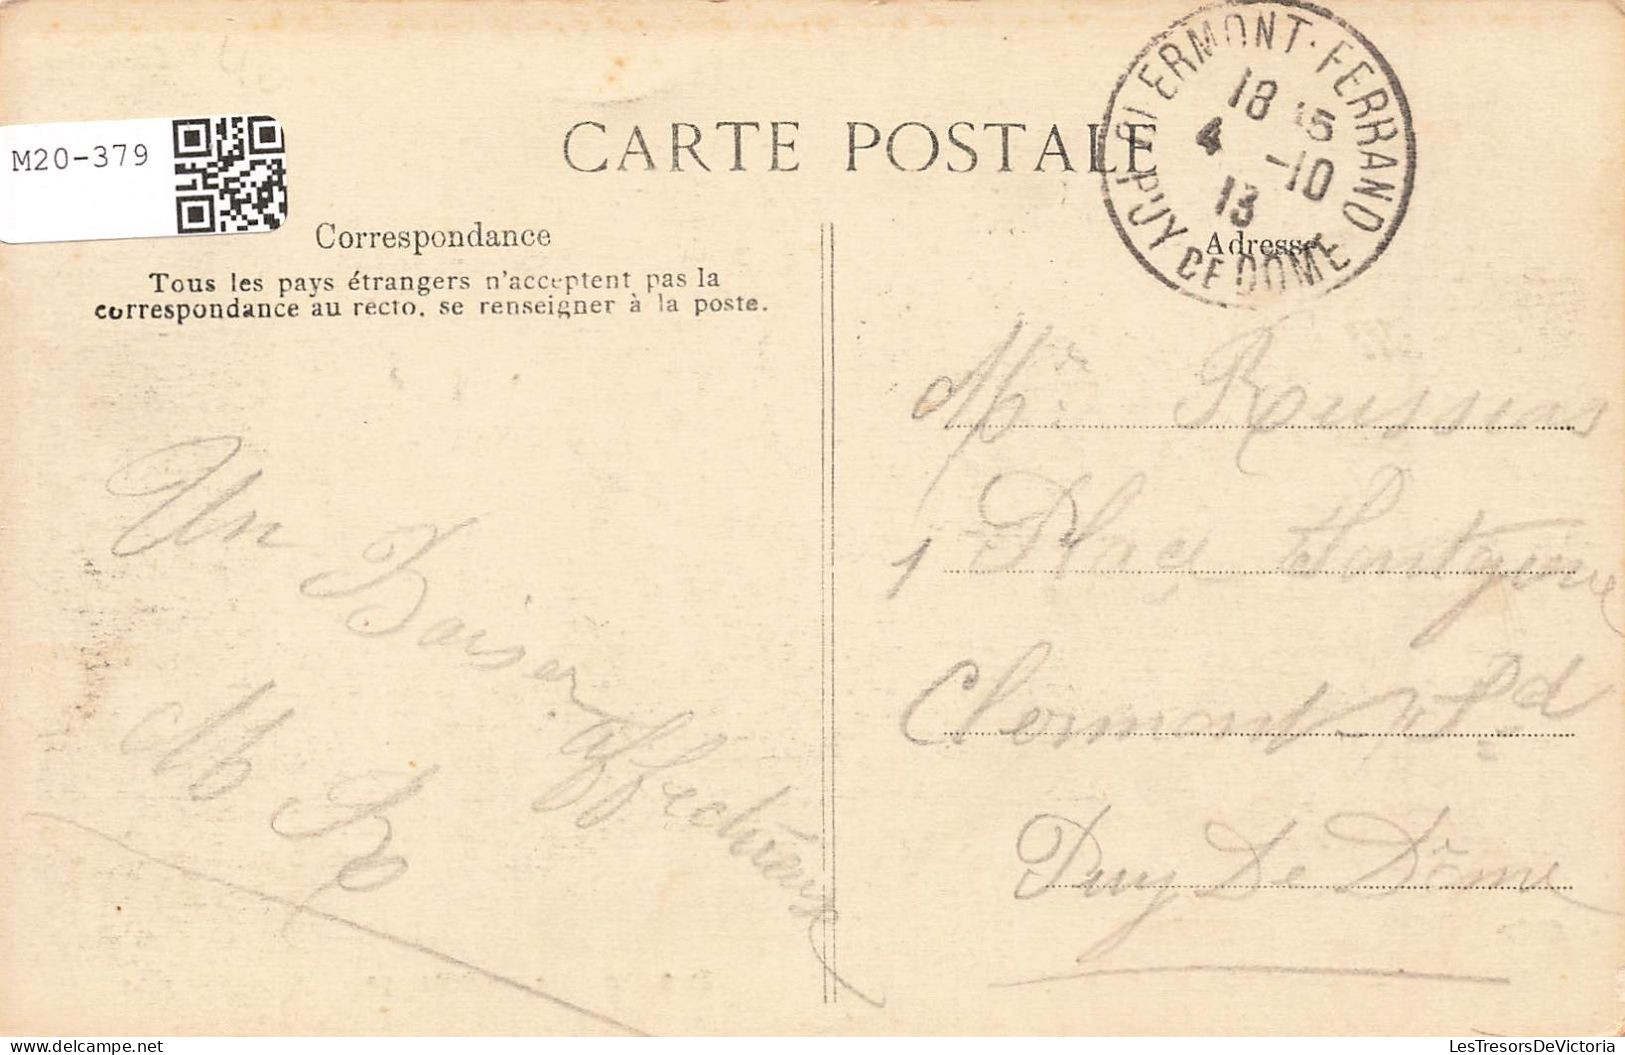 M20-379
CARTE POSTALE
CLERMONT-FERRAND
18 15
4 -10
13
PUY DE DOME
Correspondance
Tous les pays étrangers n'acceptent pas la
correspondance au recto, se renseigner à la poste.
Adresse
Un Baiser affectueux
Mr.
1 Place
Clermont Fd
Puy De Dôme
LesTresorsDeVictoria